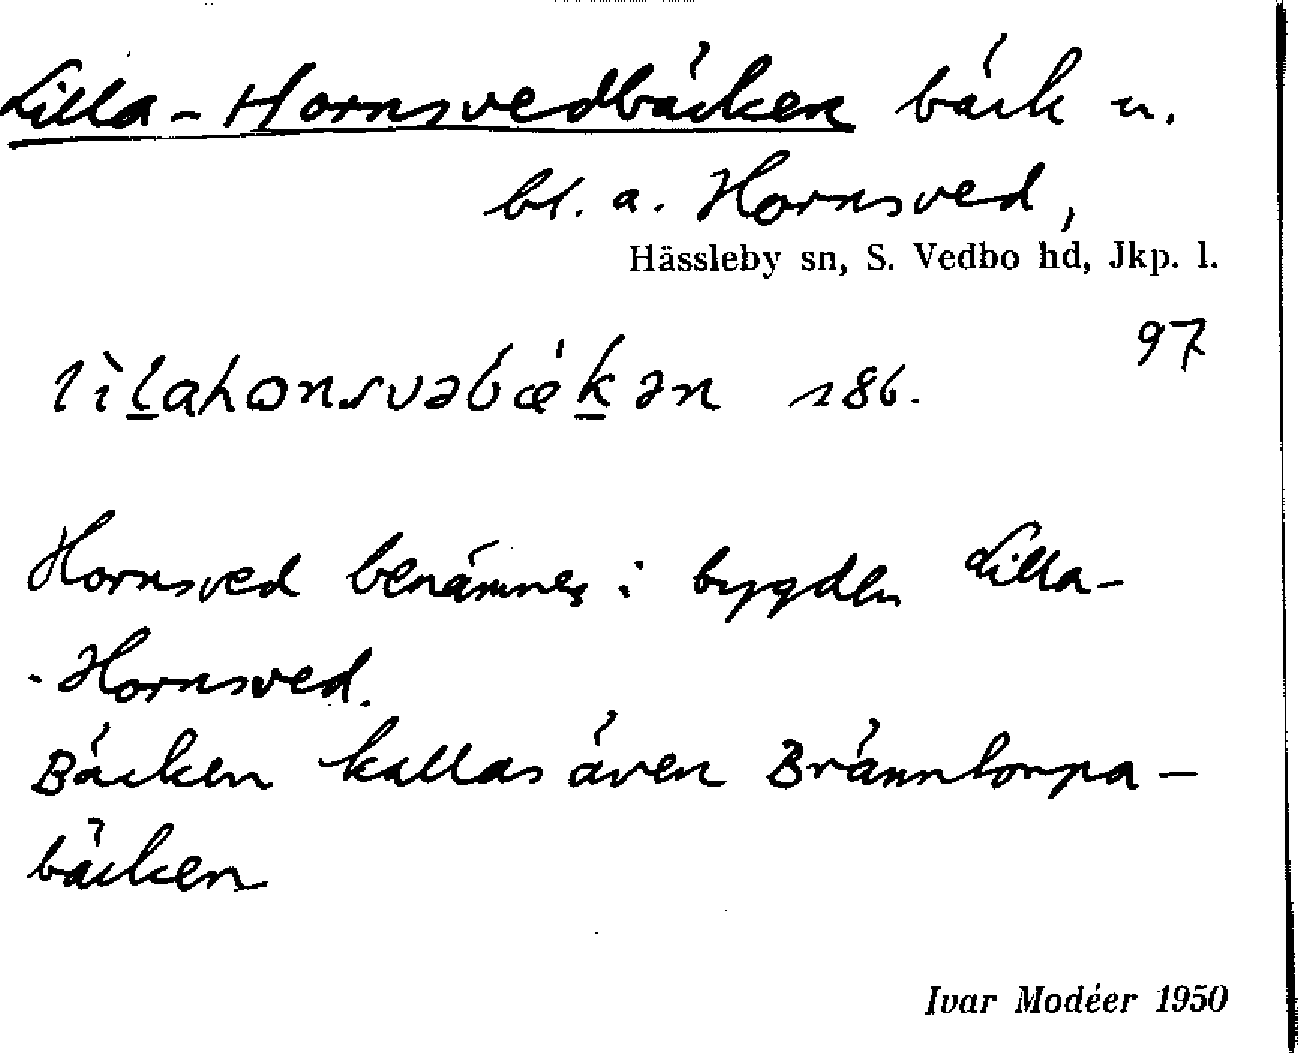 Lilla-Hornsvedbäcken bäck u.
bl. a. Hornsved,
Hässleby sn, S. Vedbo hd, Jkp. l.
97
lìlahɷnsvəbǽkən s86.
Hornsved benämnes i bygden Lilla-
-Hornsved.
Bäcken kallas även Bränntorpa-
bäcken
Ivar Modéer 1950